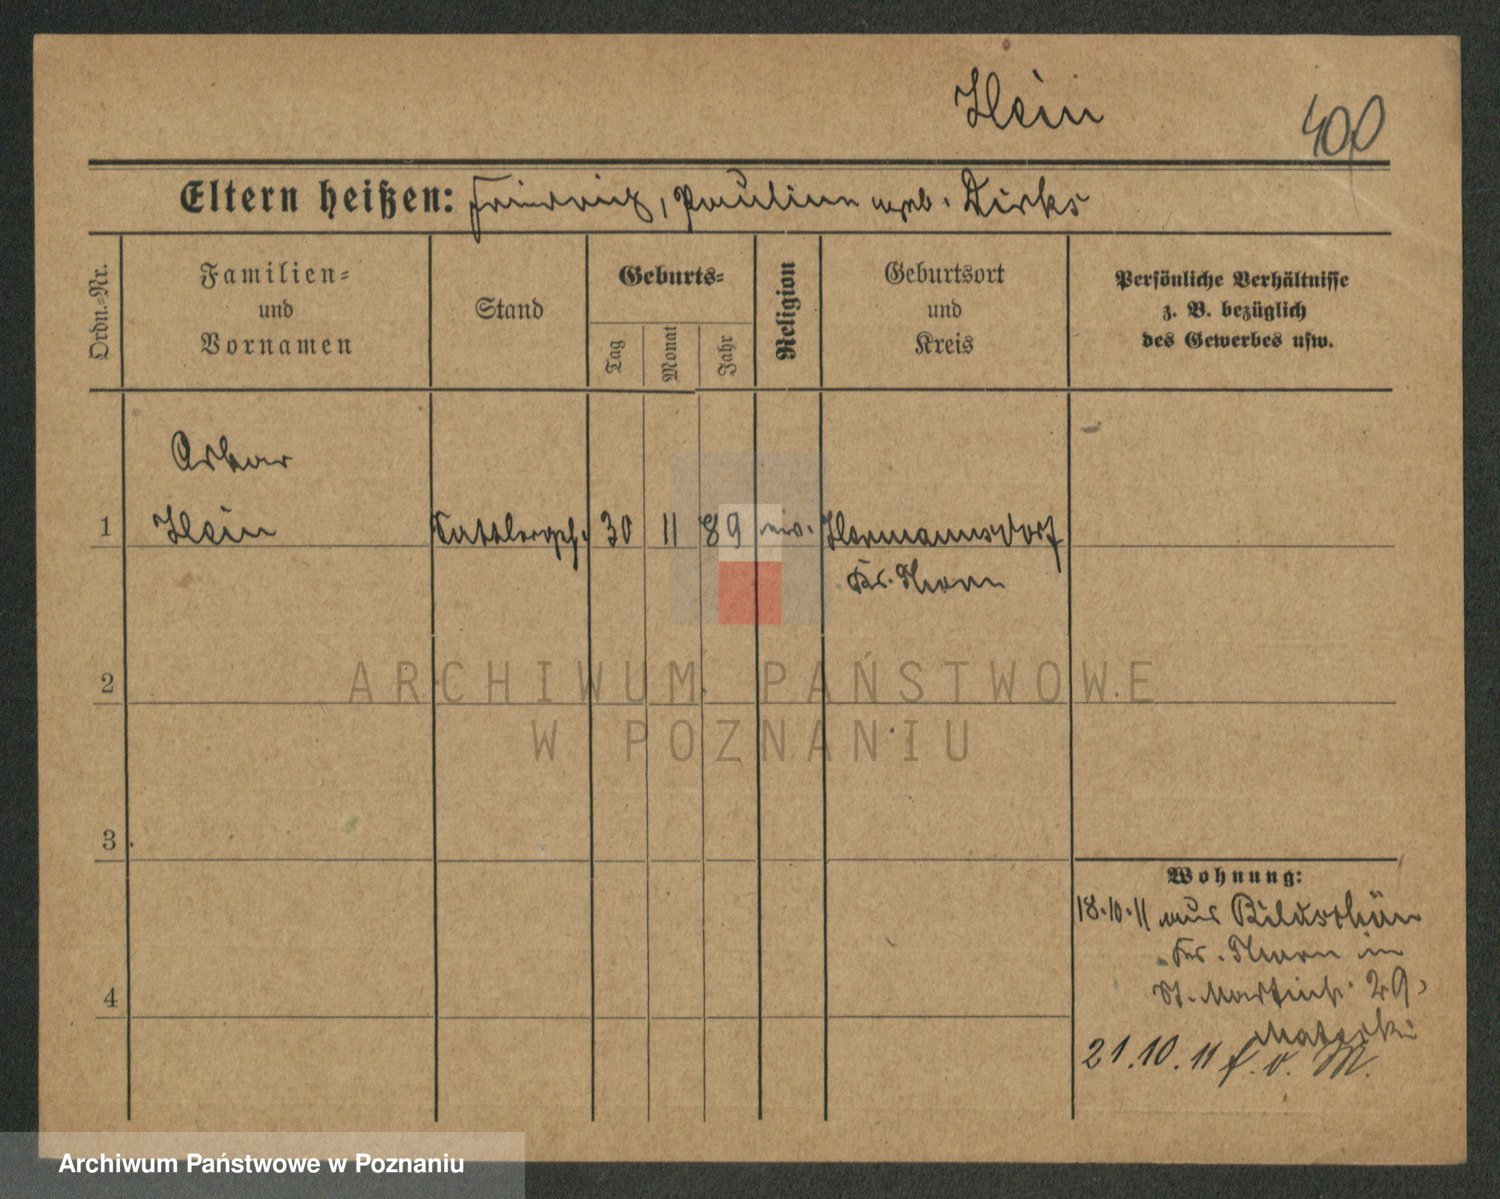 Hein
400
Eltern heißen: Friedrich, Pauline geb. Dirks
Ordn.-Nr.
Familien-
und
Vornamen
Stand
Geburts-
Tag
Monat
Jahr
Religion
Geburtsort
und
Kreis
Persönliche Verhältnisse
z. B. bezüglich
des Gewerbes usw.
Oskar
1 Hein Sattlergeh. 30 11 89 ev. Hermannsdorf
Kr. Thorn
2
ARCHIWUM PAŃSTWOWE
W POZNANIU
3
Wohnung:
18.10.11 aus Bildschön
Kr. Thorn in
4
St. Martinstr. 29,
21.10.11 f. v. M.
Archiwum Państwowe w Poznaniu